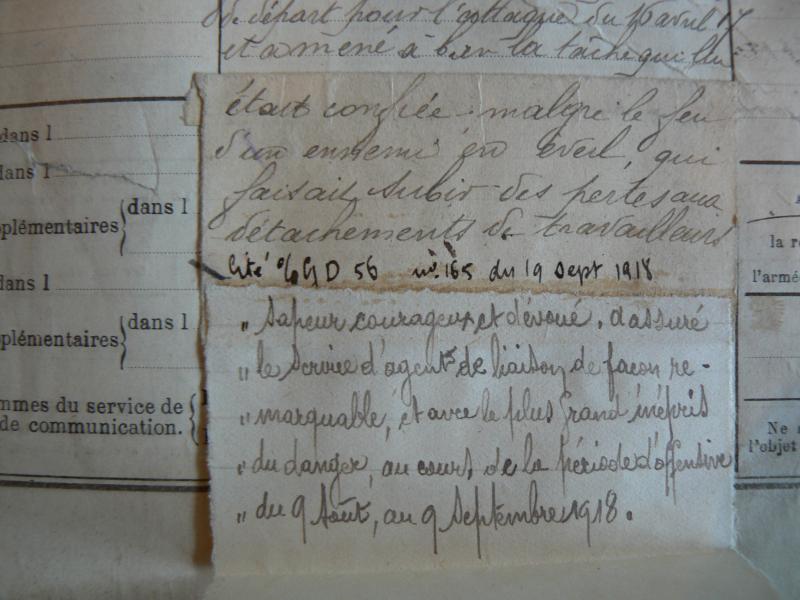 de départ pour l'attaque du 16 avril 17
et a mené à bien la tâche qui lui
était confiée malgré le feu
d'un ennemi en éveil, qui
faisait subir des pertes aux
détachements de travailleurs
Cité o/ G D 56 no. 165 du 19 Sept 1918
„ Sapeur courageux et dévoué, a assuré
„ le Service d'agent de liaison de façon re-
„ marquable, et avec le plus grand mépris
„ du danger, au cours de la période d'offensive
„ du 9 Août, au 9 Septembre 1918.
dans l
dans l
plémentaires
dans l
dans l
plémentaires
dans l
mmes du service de
de communication.
la r
l'armé
Ne
l'objet